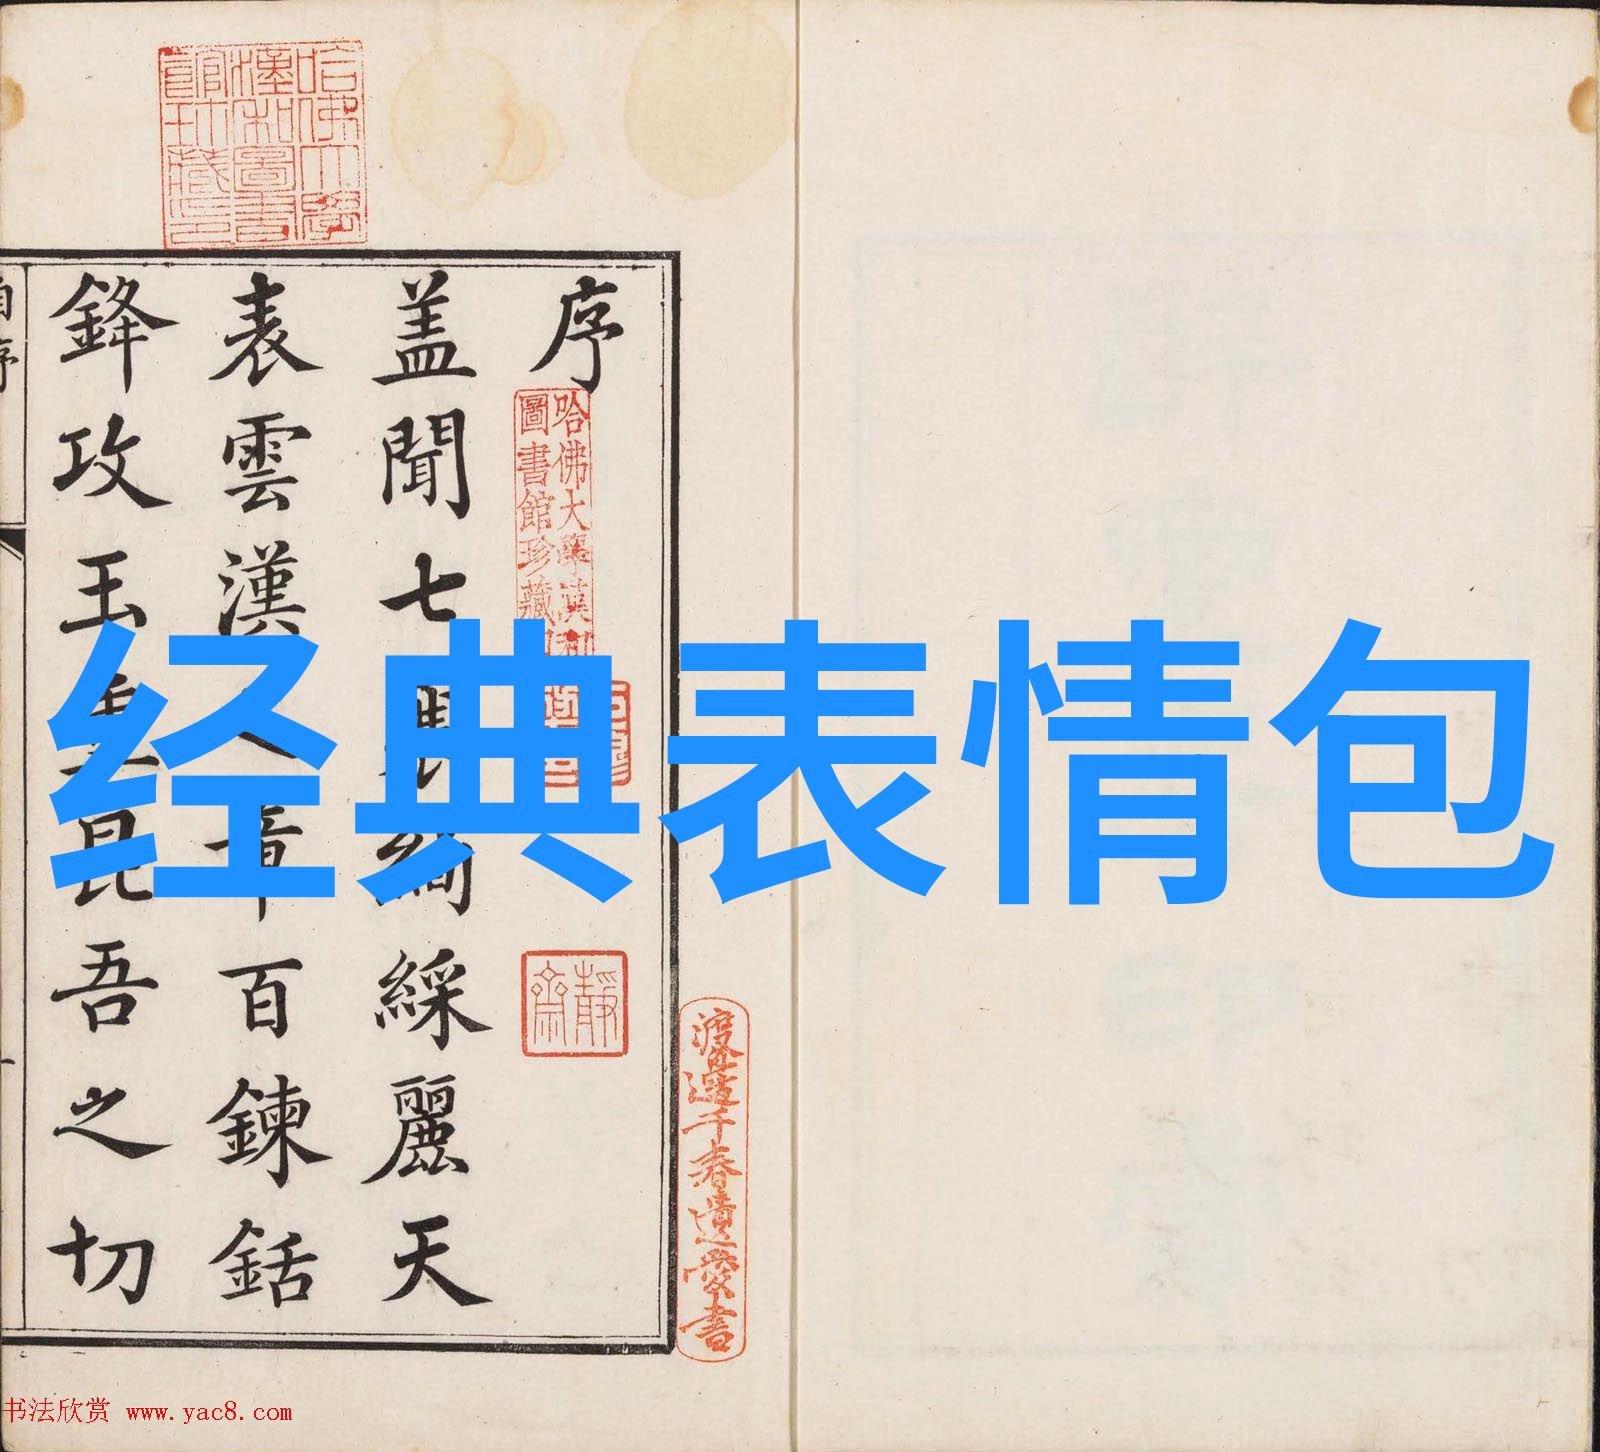 哈佛大學
漢和圖書
館珍藏印
序
哈佛大學漢和
圖書館珍藏
靜齋
渡邊千春遺愛書
盖聞七絢綵麗天
表雲漢章百鍊銛
鋒攻玉昆吾之切
自序
经典表情包
书法欣赏 www.yac8.com